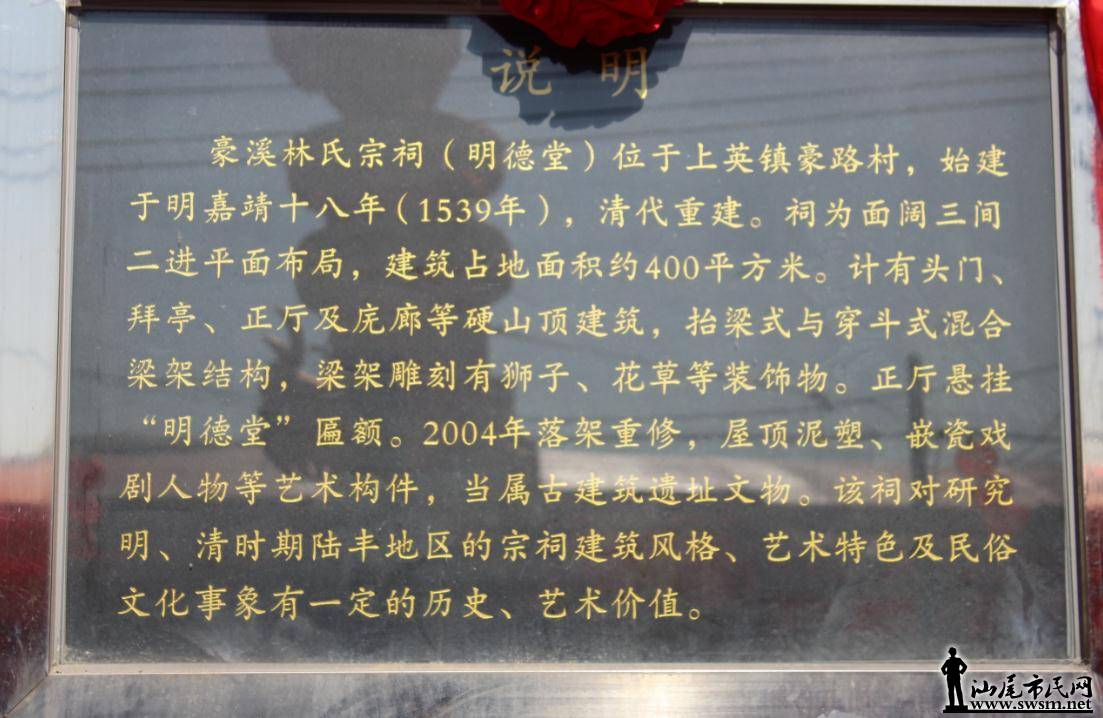 说 明
豪溪林氏宗祠（明德堂）位于上英镇豪路村，始建
于明嘉靖十八年（1539年），清代重建。祠为面阔三间
二进平面布局，建筑占地面积约400平方米。计有头门、
拜亭、正厅及庑廊等硬山顶建筑，抬梁式与穿斗式混合
梁架结构，梁架雕刻有狮子、花草等装饰物。正厅悬挂
“明德堂”匾额。2004年落架重修，屋顶泥塑、嵌瓷戏
剧人物等艺术构件，当属古建筑遗址文物。该祠对研究
明、清时期陆丰地区的宗祠建筑风格、艺术特色及民俗
文化事象有一定的历史、艺术价值。
汕尾市民网
www.swsm.net